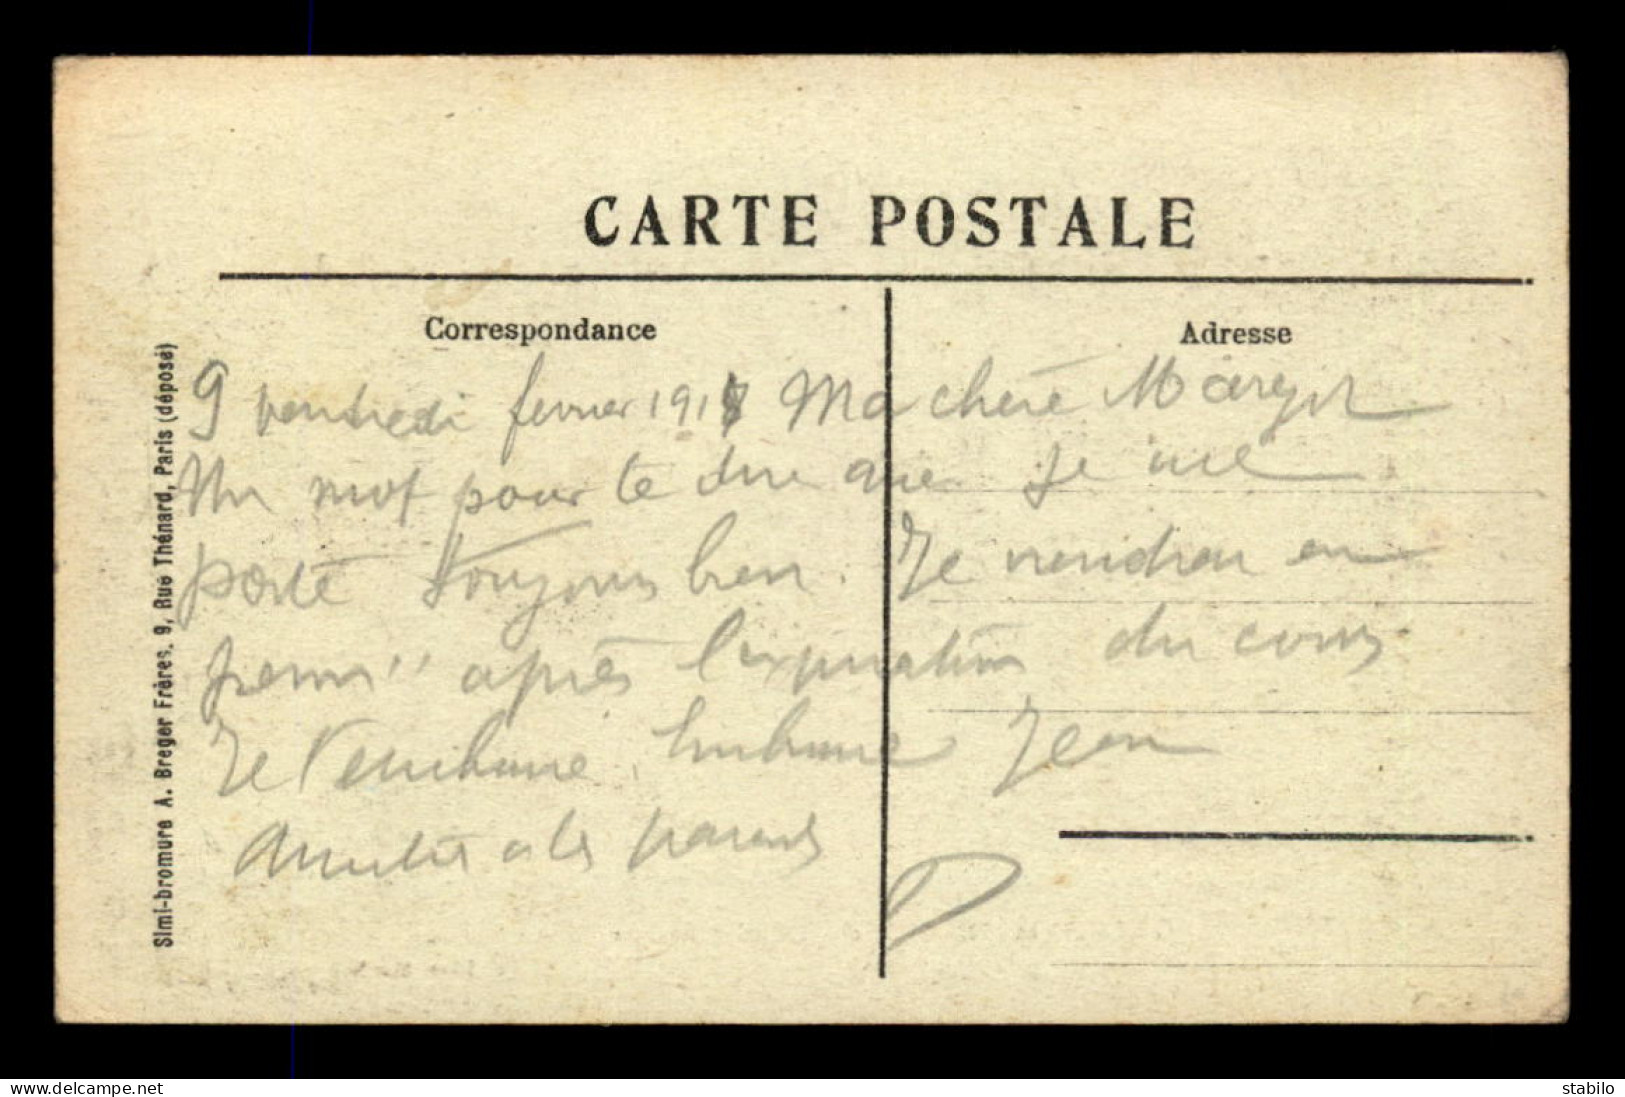 CARTE POSTALE
Correspondance
Adresse
9 vendredi fevrier 191 Ma chère Margot
Un mot pour te dire que je me
porte toujours bien. Je viendrai en
perm" après l'expiration du cours
Je t'embrasse. Embrasse Jean
Amitiés a les parents
Simi-bromure A. Breger Frères, 9, Rue Thénard, Paris (déposé)
delcampe.net
stabilo